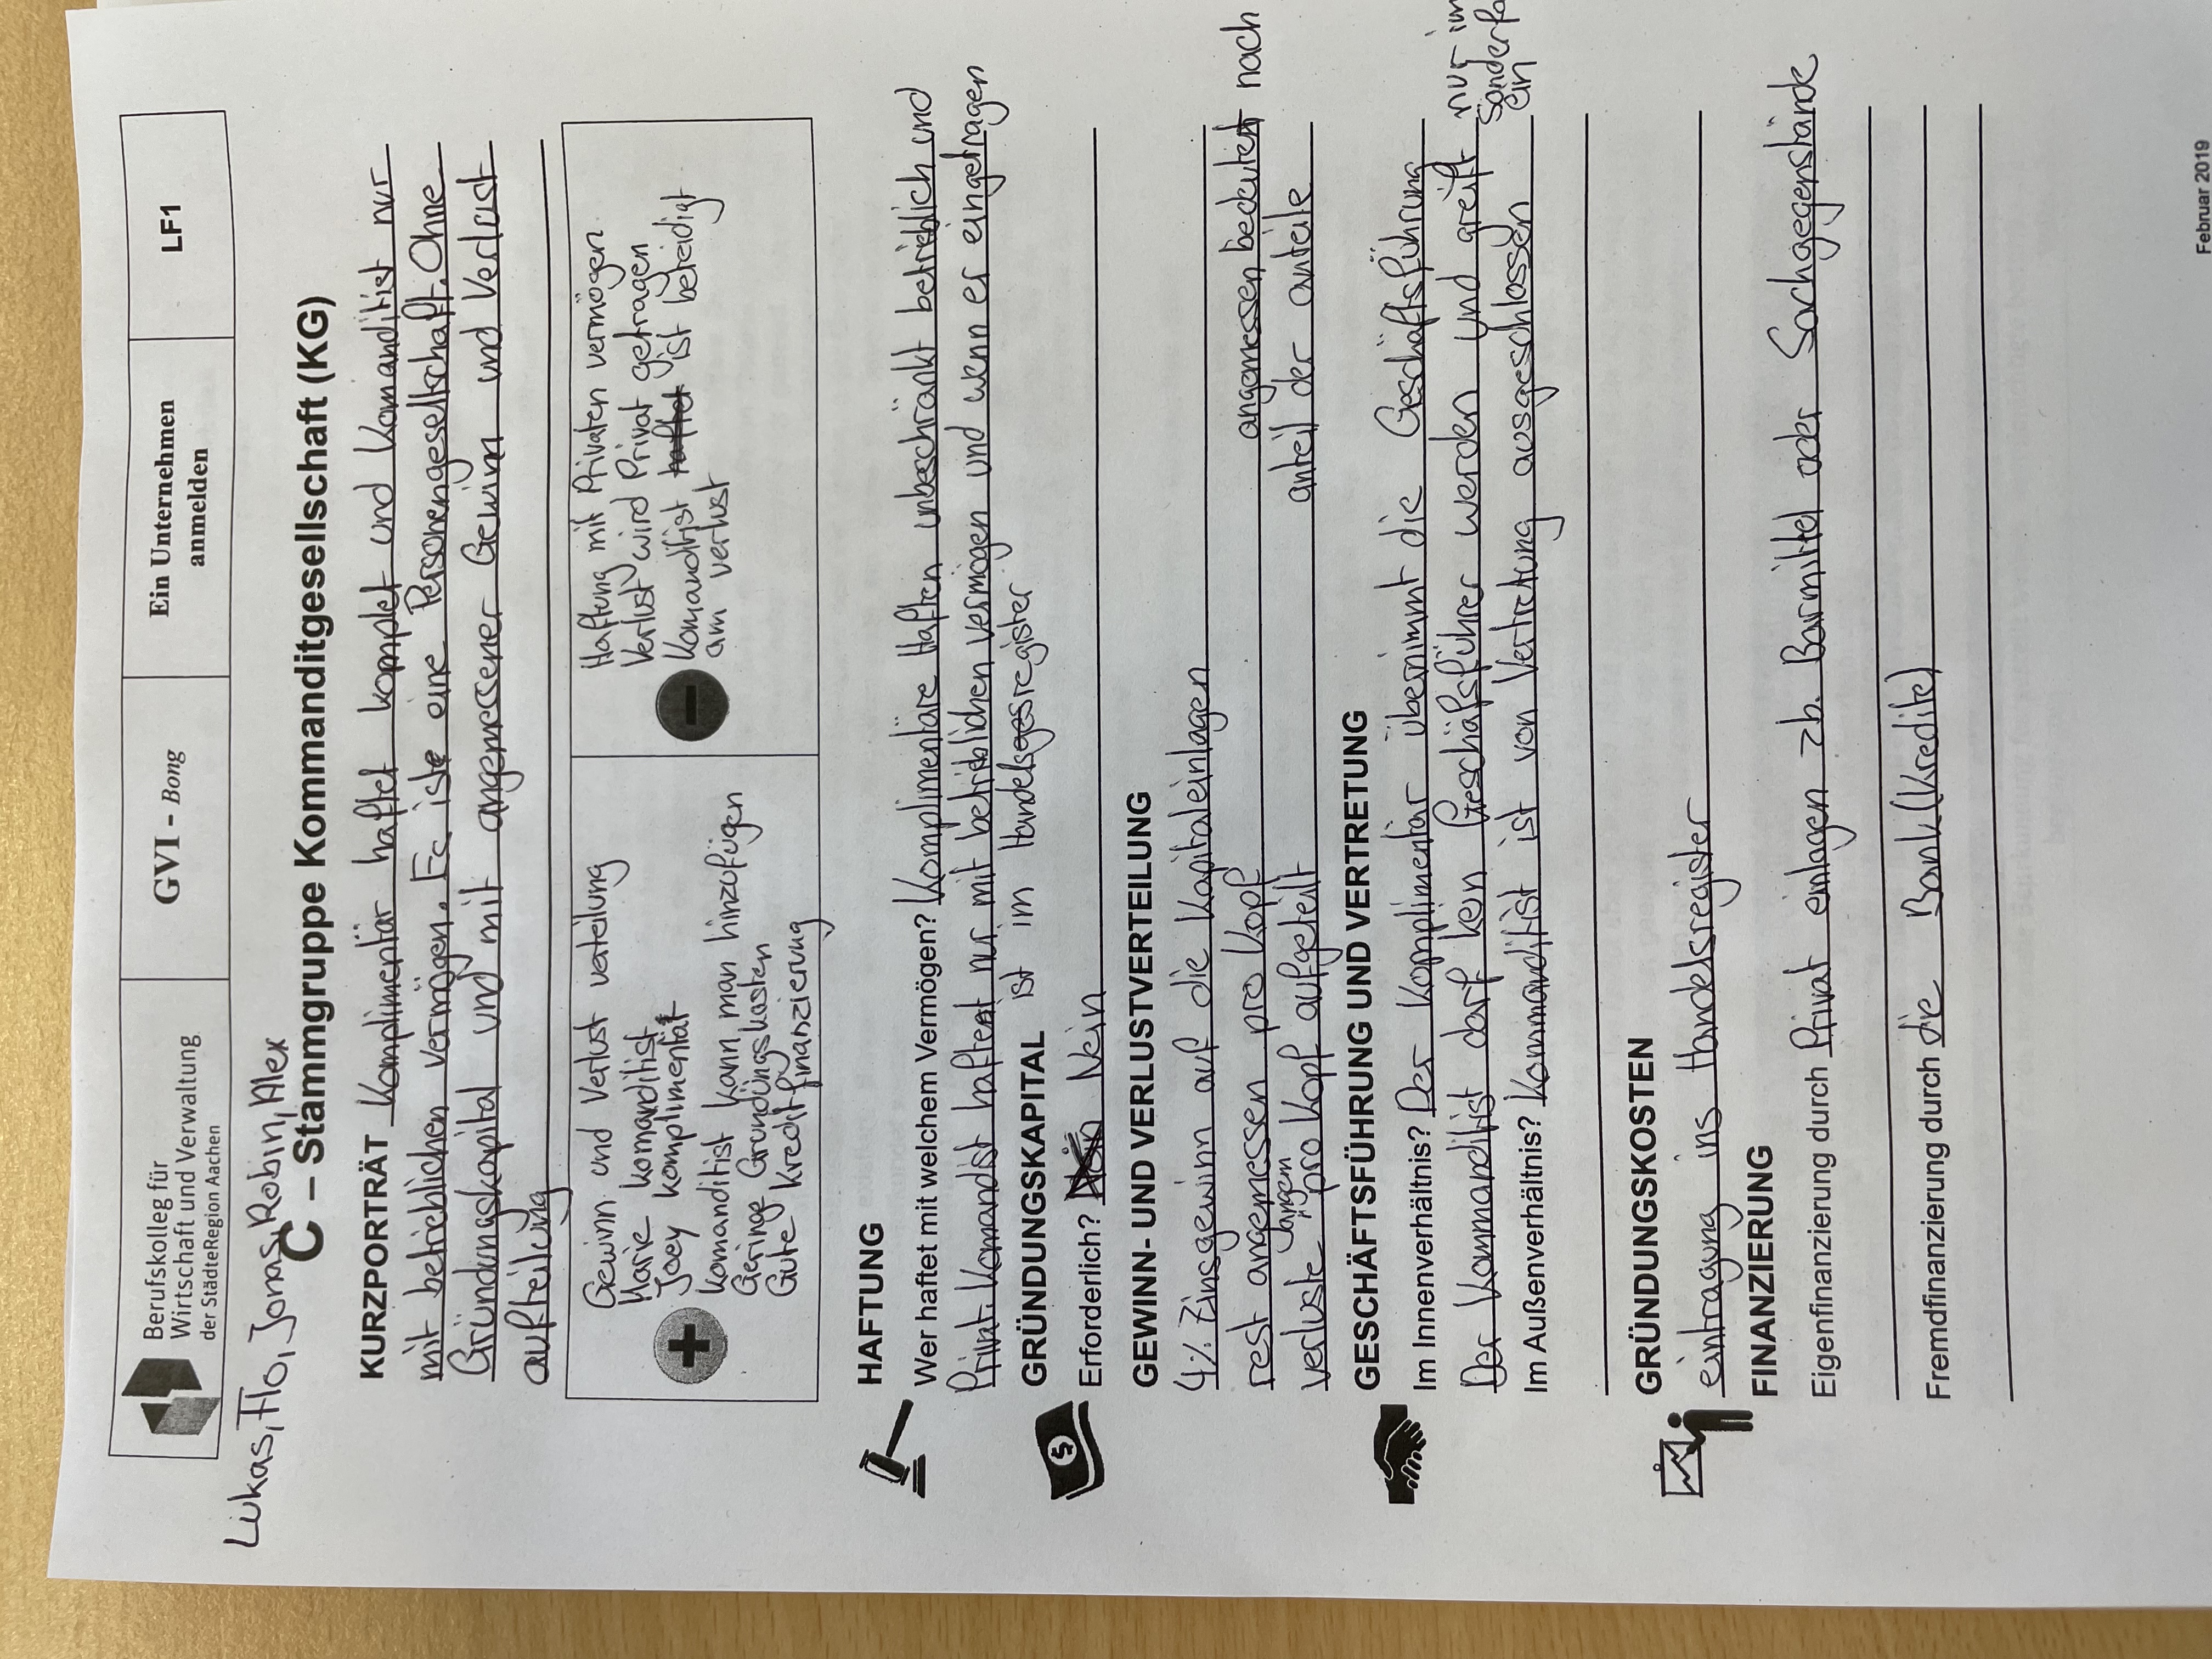 Berufskolleg für
Wirtschaft und Verwaltung
der StädteRegion Aachen
GVI - Bong
Ein Unternehmen
anmelden
LF1
Lukas, Flo, Jonas, Robin, Alex
C – Stammgruppe Kommanditgesellschaft (KG)
KURZPORTRÄT Komplimentär haftet komplet und Komanditist nur
mit betrieblichen vermögen. Es ist eine Personengesellschaft. Ohne
Gründungskapital und mit angemessener Gewinn und Verlust
aufteilung
Gewinn und Verlust verteilung
Marie komanditist
Joey komplimentät
komanditist kann man hinzufügen
Geringe Grundüngskosten
Gute Kreditfinanzierung
Haftung mit Privaten vermögen
Verlust wird Privat getragen
Komanditist haftet ist beteidigt
am verlust
HAFTUNG
Wer haftet mit welchem Vermögen? Komplimentäre Haften unbeschränkt betrieblich und
Privat. Komandist haftet nur mit betrieblichen vermögen und wenn er eingetragen
ist im Handelsregister
GRÜNDUNGSKAPITAL
Erforderlich? Nein Nein
GEWINN- UND VERLUSTVERTEILUNG
4% Zinsgewinn auf die Kapitaleinlagen
rest angemessen pro Kopf angemessen bedeutet nach
verluste angem pro Kopf aufgeteilt anteil der anteile
GESCHÄFTSFÜHRUNG UND VERTRETUNG
Im Innenverhältnis? Der Komplimentär übernimmt die Geschäftsführung
Der Kommanditist darf kein Geschäfsführer werden und greift nur im
Sonderfa
ein
Im Außenverhältnis? Kommanditist ist von Vertretung ausgeschlossen
GRÜNDUNGSKOSTEN
eintragung ins Handelsregister
FINANZIERUNG
Eigenfinanzierung durch Privat einlagen zb. Barmittel oder Sachgegenstände
Fremdfinanzierung durch die Bank (Kredite)
Februar 2019